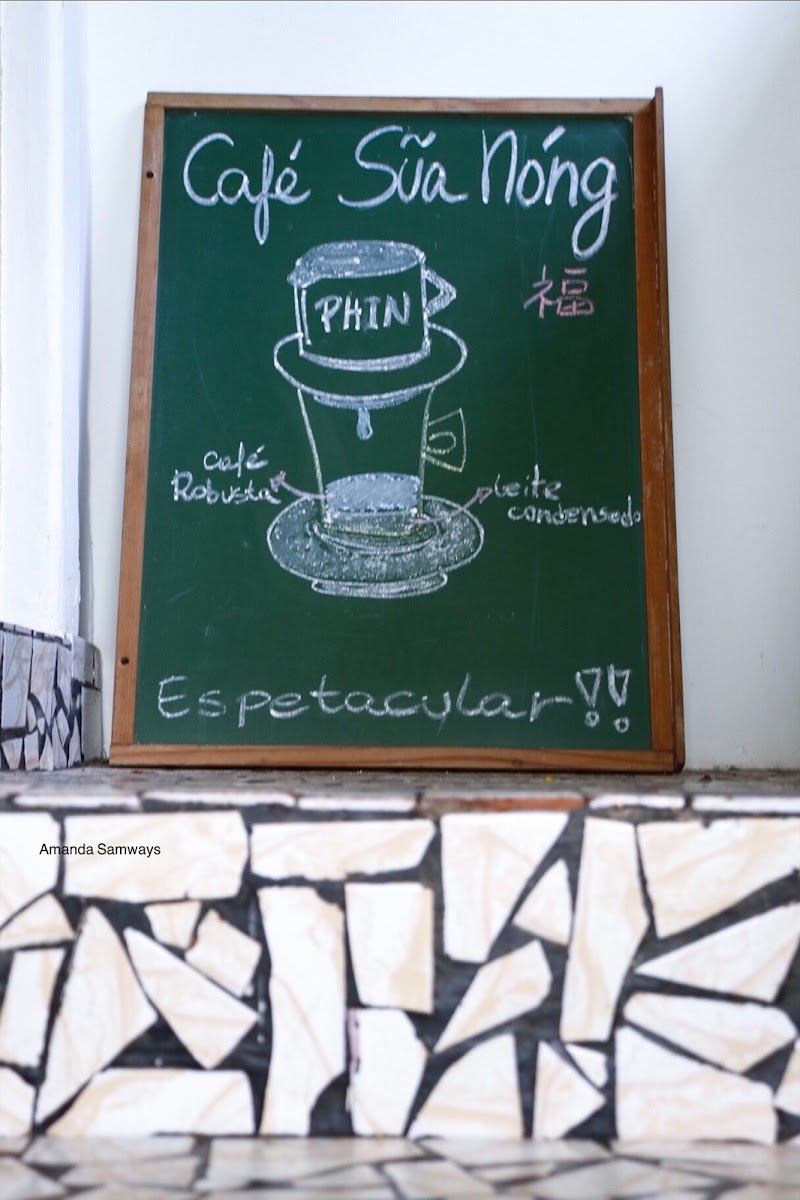 Café Sũa Nóng
福
PHIN
café
Robusta
Leite
condensado
Espetacular!!
Amanda Samways